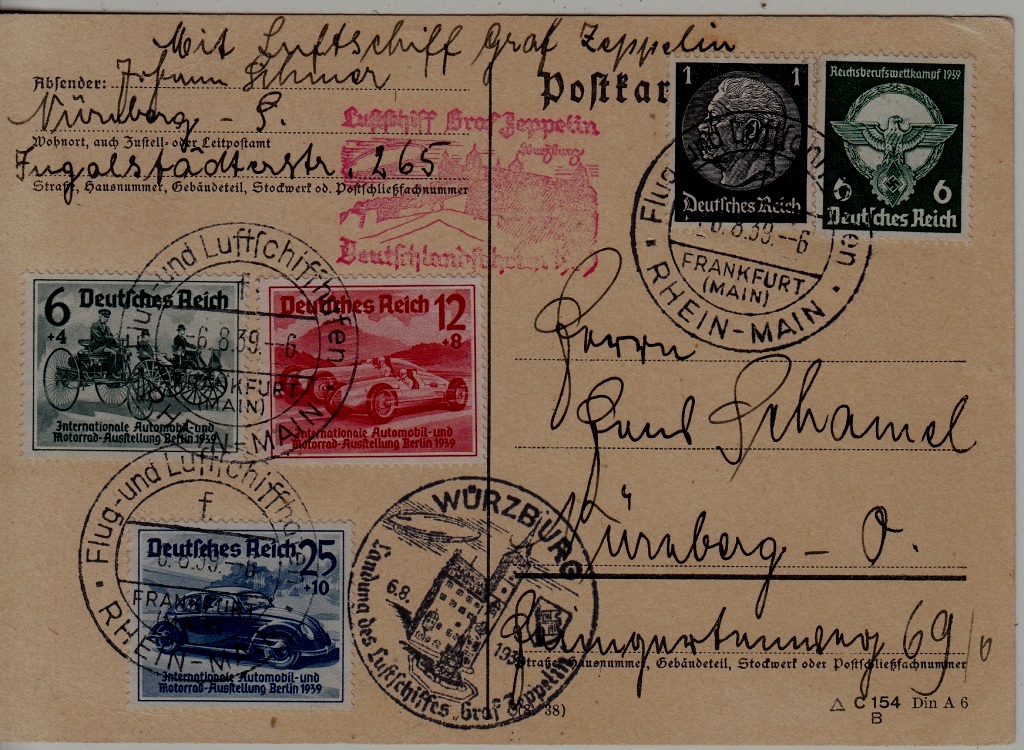 Mit Luftschiff Graf Zeppelin
Absender: Johann
Nürnberg - S.
Wohnort, auch Zustell- oder Leitpostamt
265
Straße, Hausnummer, Gebäudeteil, Stockwerk od. Postschließfachnummer
Luftschiff Graf Zeppelin
Würzburg
Postkar
1 1
Deutsches Reich
Reichsberufswettkampf 1939
6 6
Deutsches Reich
Flug- und Luftschiffhafen
6.8.39.--6
FRANKFURT
(MAIN)
RHEIN-MAIN
6
+4
Deutsches Reich
Internationale Automobil-und
Motorrad-Ausstellung Berlin 1939
Deutsches Reich
12
+8
Internationale Automobil-und
Motorrad-Ausstellung Berlin 1939
Flug-und Luftschiffhafen
f
6.8.39.--6
FRANKFURT
(MAIN)
RHEIN-MAIN
Flug-und Luftschiffhafen
f
6.8.39.--6
FRANKFURT
RHEIN-MAIN
Deutsches Reich
25
+10
Internationale Automobil-und
Motorrad-Ausstellung Berlin 1939
WÜRZBURG
6.8.
1939
Landung des Luftschiffes „Graf Zeppelin“
Herrn
Schamel
Nürnberg - O.
69/0
Straße, Hausnummer, Gebäudeteil, Stockwerk oder Postschließfachnummer
38)
△ C 154 Din A 6
B